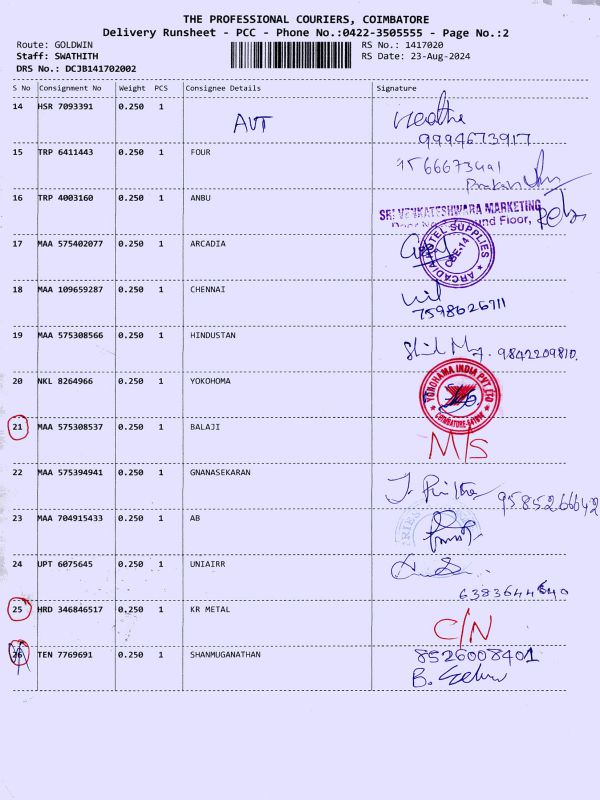 THE PROFESSIONAL COURIERS, COIMBATORE
Delivery Runsheet - PCC - Phone No.:0422-3505555 - Page No.:2
Route: GOLDWIN RS No.: 1417020
Staff: SWATHITH RS Date: 23-Aug-2024
DRS No.: DCJB141702002
S No Consignment No Weight PCS Consignee Details Signature
14 HSR 7093391 0.250 1
AVT
9994673917
15 TRP 6411443 0.250 1 FOUR
16 TRP 4003160 0.250 1 ANBU
SRI VENKATESHWARA MARKETING
Floor,
17 MAA 575402077 0.250 1 ARCADIA
ARCADIA HOTEL SUPPLIES
CBE-14
18 MAA 109659287 0.250 1 CHENNAI
7598626711
19 MAA 575308566 0.250 1 HINDUSTAN
9842209810.
20 NKL 8264966 0.250 1 YOKOHOMA
YOKOHAMA INDIA PVT LTD
21 MAA 575308537 0.250 1 BALAJI
M/S
22 MAA 575394941 0.250 1 GNANASEKARAN
9585266642
23 MAA 704915433 0.250 1 AB
24 UPT 6075645 0.250 1 UNIAIRR
6383644640
25 HRD 346846517 0.250 1 KR METAL
C/N
26 TEN 7769691 0.250 1 SHANMUGANATHAN
8526008401